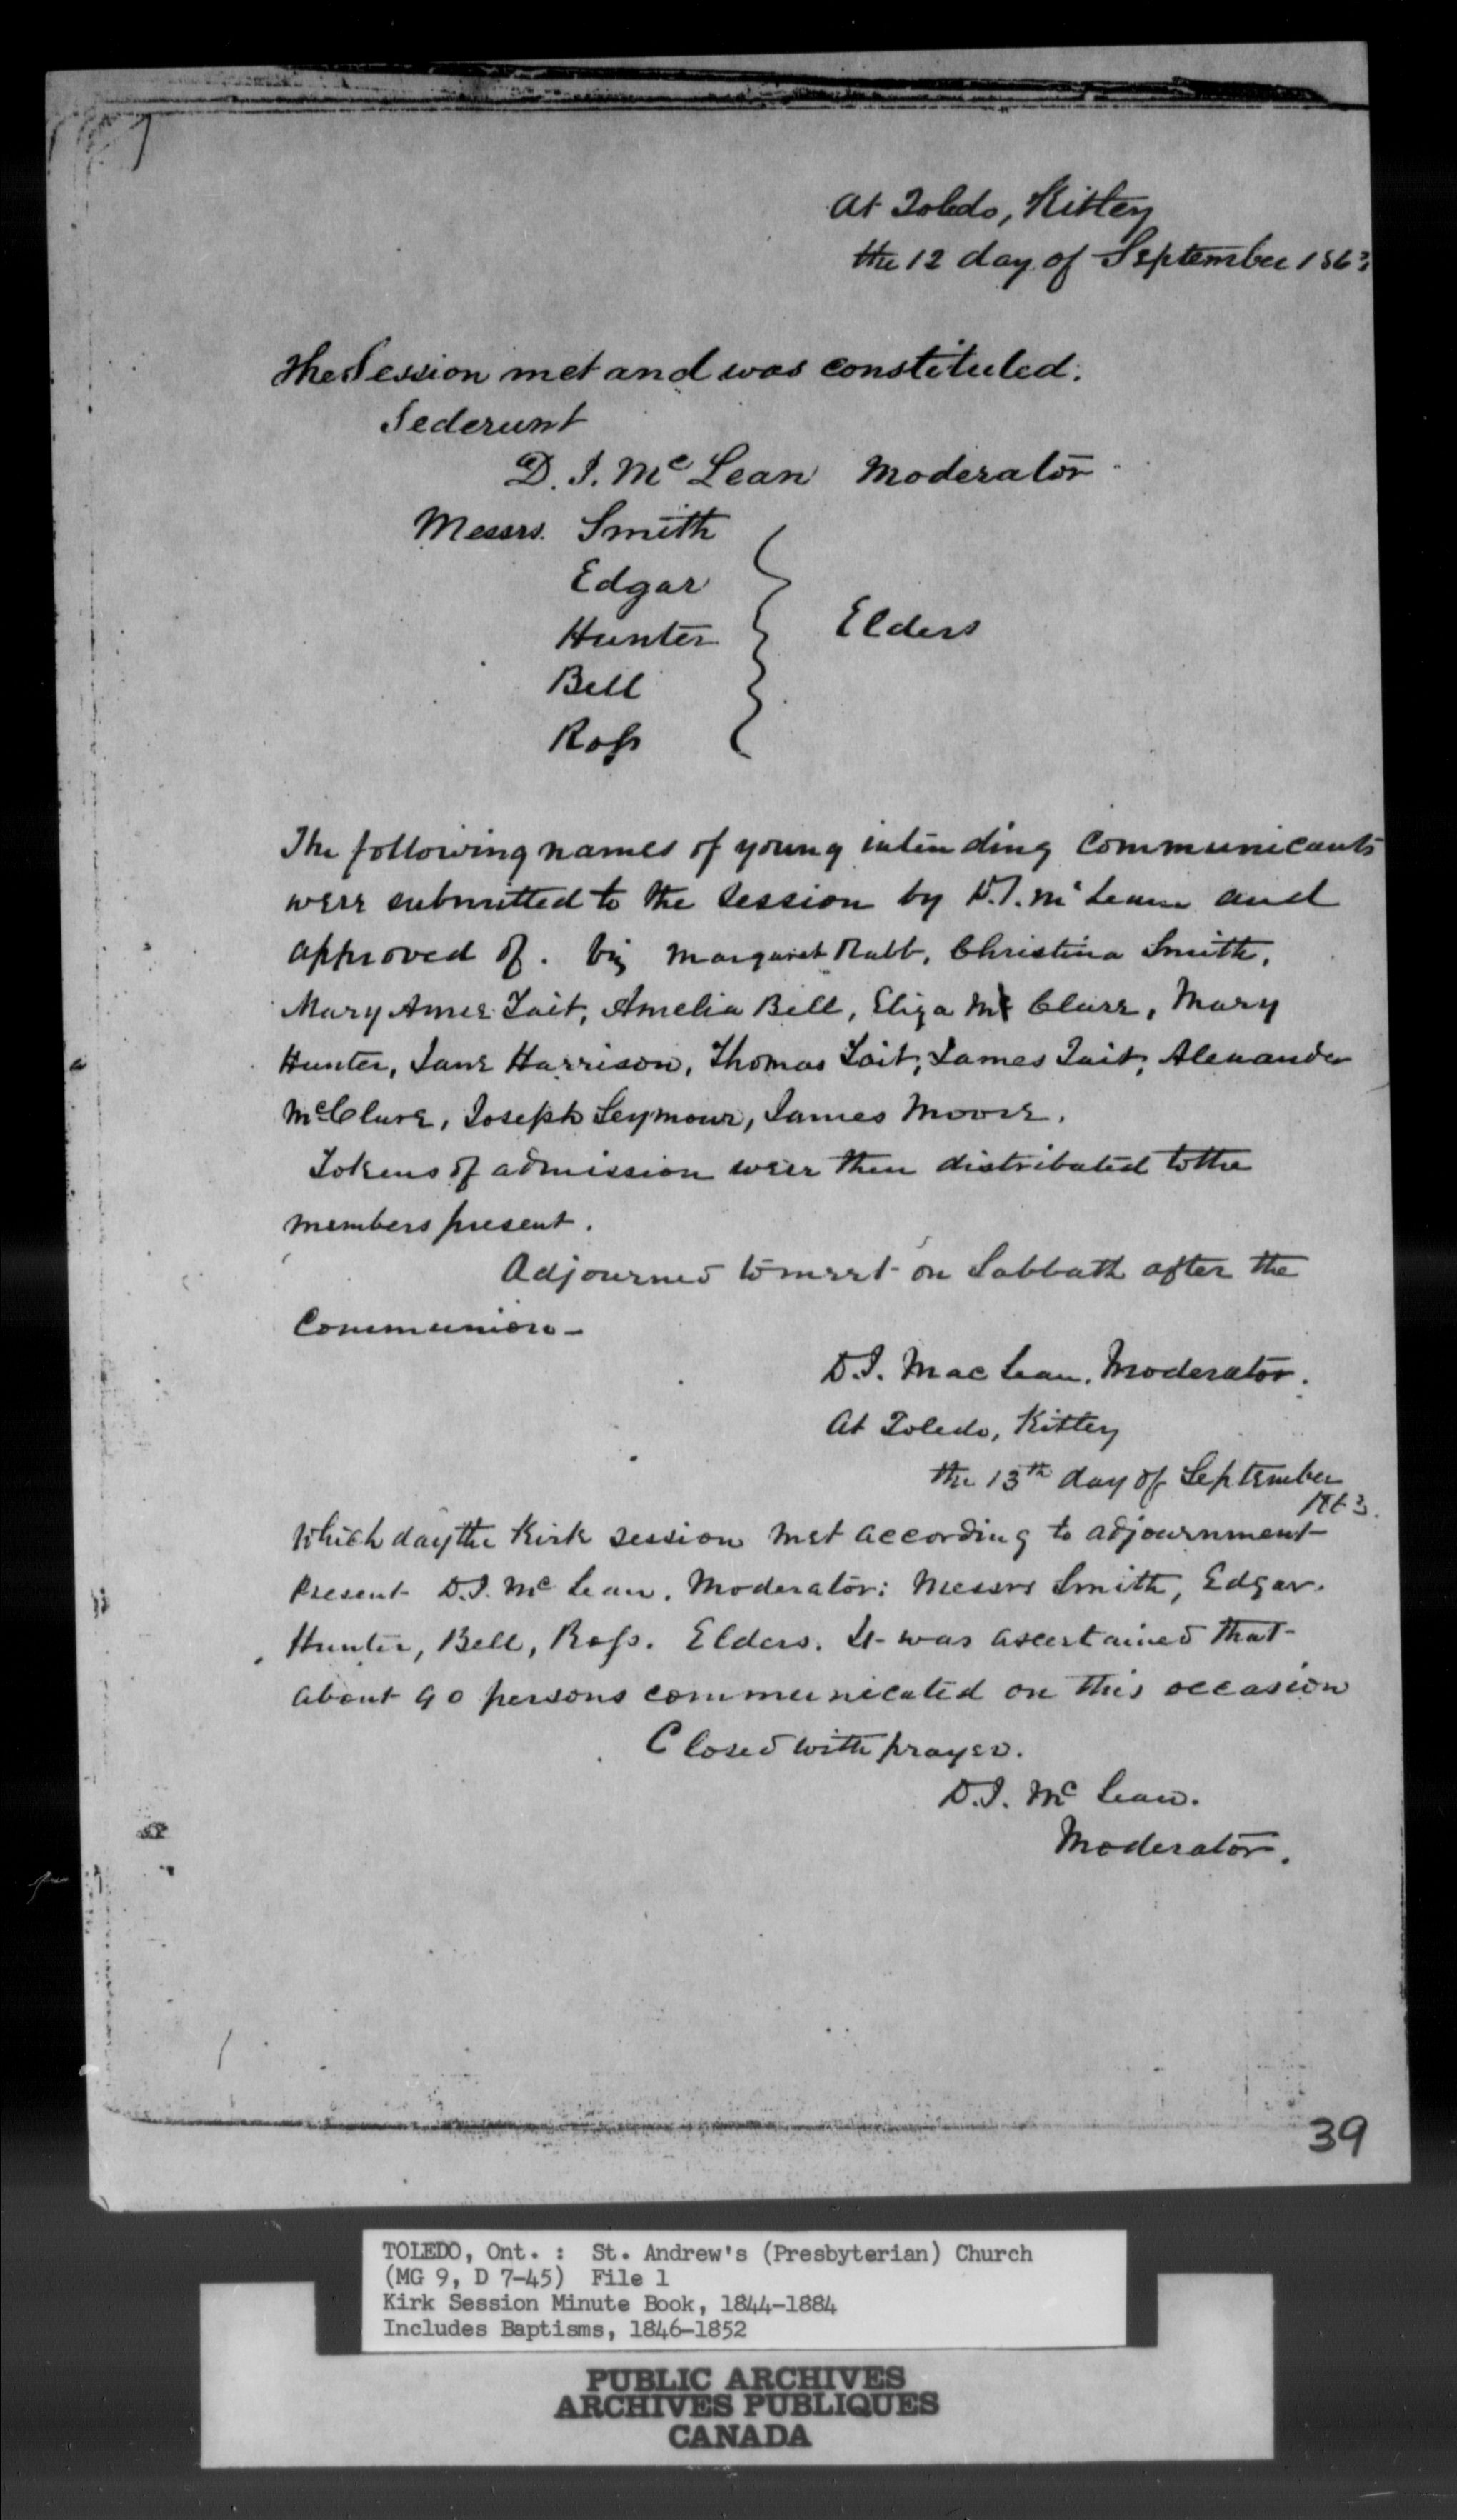 At Toledo, Kitley
the 12 day of September 1863
The Session met and was constituted.
Sederunt
D. J. Mc Lean Moderator
Messrs. Smith
Edgar
Hunter
Elders
Bell
Ross
The following names of young intending communicants
were submitted to the Session by D. J. Mc Lean and
approved of. Viz Margaret Rabb, Christina Smith,
Mary Anne Tait, Amelia Bell, Eliza Mc Clure, Mary
Hunter, Jane Harrison, Thomas Tait, James Tait, Alexander
McClure, Joseph Seymour, James Moore.
Tokens of admission were then distributed to the
members present.
Adjourned to meet on Sabbath after the
Communion—
D. J. Mac Lean. Moderator.
At Toledo, Kitley
the 13th day of September
1863.
Which day the Kirk session met according to adjournment
Present D. J. Mc Lean. Moderator: Messrs Smith, Edgar.
Hunter, Bell, Ross. Elders. It was ascertained that
about 90 persons communicated on this occasion
Closed with prayer.
D. J. Mc Lean.
Moderator.
39
TOLEDO, Ont. : St. Andrew's (Presbyterian) Church
(MG 9, D 7-45) File 1
Kirk Session Minute Book, 1844-1884
Includes Baptisms, 1846-1852
PUBLIC ARCHIVES
ARCHIVES PUBLIQUES
CANADA